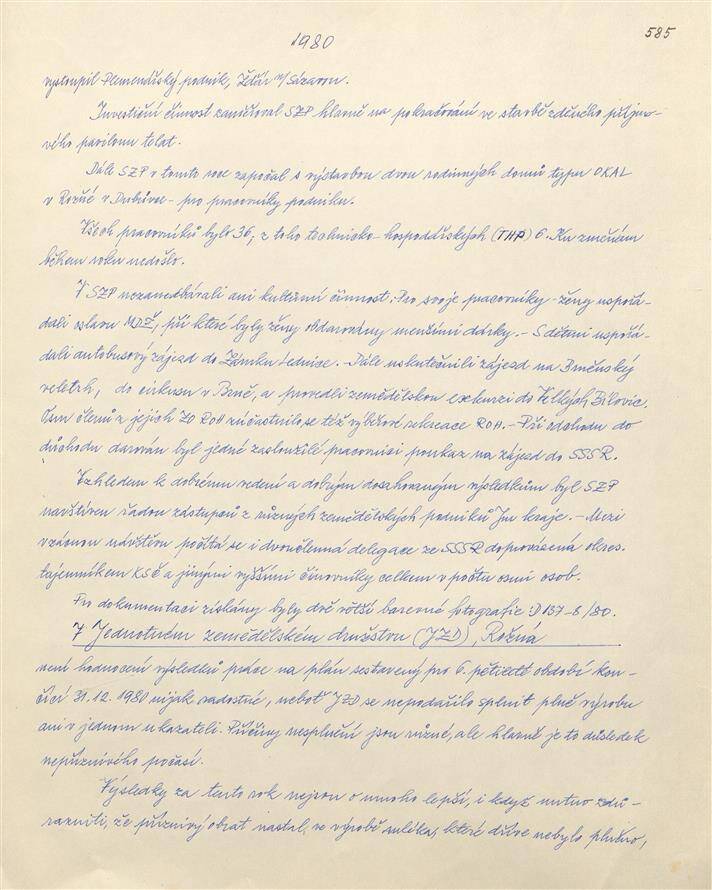 1980
585
vystoupil Plemenářský podnik, Žďár n/Sázavou.
Investiční činnost zaměřoval SZP hlavně na pokračování ve stavbě zděného příjmo-
vého pavilonu telat.
Dále SZP v tomto roce započal s výstavbou dvou rodinných domů typu OKAL
v Rožné v Doubravce - pro pracovníky podniku.
Všech pracovníků bylo 36, z toho technicko-hospodářských (THP) 6. Ku změnám
během roku nedošlo.
V SZP nezanedbávali ani kulturní činnost. Pro svoje pracovníky - ženy uspořá-
dali oslavu MDŽ, při které byly ženy obdarovány menšími dárky. - S dětmi uspořá-
dali autobusový zájezd do Zámku Lednice. - Dále uskutečnili zájezd na Brněnský
veletrh, do cirkusu v Brně, a provedli zemědělskou exkurzi do Velkých Bílovic.
Osm členů z jejich ZO ROH zúčastnilo se též výběrové rekreace ROH. - Při odchodu do
důchodu darován byl jedné zasloužilé pracovnici poukaz na zájezd do SSSR.
Vzhledem k dobrému vedení a dobrým dosahovaným výsledkům byl SZP
navštíven řadou zástupců z různých zemědělských podniků Jm kraje. - Mezi
vzácnou návštěvu počítá se i dvoučlenná delegace ze SSSR doprovázená okres.
tajemníkem KSČ a jinými vyššími činovníky celkem v počtu osmi osob.
Pro dokumentaci získány byly dvě větší barevné fotografie: D 137-8/80.
V Jednotném zemědělském družstvu (JZD), Rožná
není hodnocení výsledků práce na plán sestavený pro 6. pětileté období kon-
čící 31.12.1980 nijak radostné, neboť JZD se nepodařilo splnit plně výrobu
ani v jednom ukazateli. Příčiny nesplnění jsou různé, ale hlavně je to důsledek
nepříznivého počasí.
Výsledky za tento rok nejsou o mnoho lepší, i když nutno zdů-
razniti, že příznivý obrat nastal ve výrobě mléka, které dříve nebylo plněno,